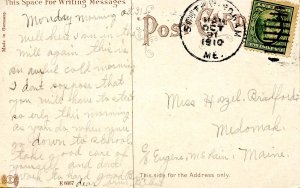 This Space for Writing Messages
Monday morning
Well here I am in the
Mill again this is
an awful cold morning
I dont suppose that
you will have to start
so erly this morning
as you do when your
down to school
take good care of
yourself and dont
work to hard good
E 6087
dear
Made in Germany
Post
OCT
1910
ME.
Miss Hazel Bradford
Medomak
Maine.
This side for the Address only.